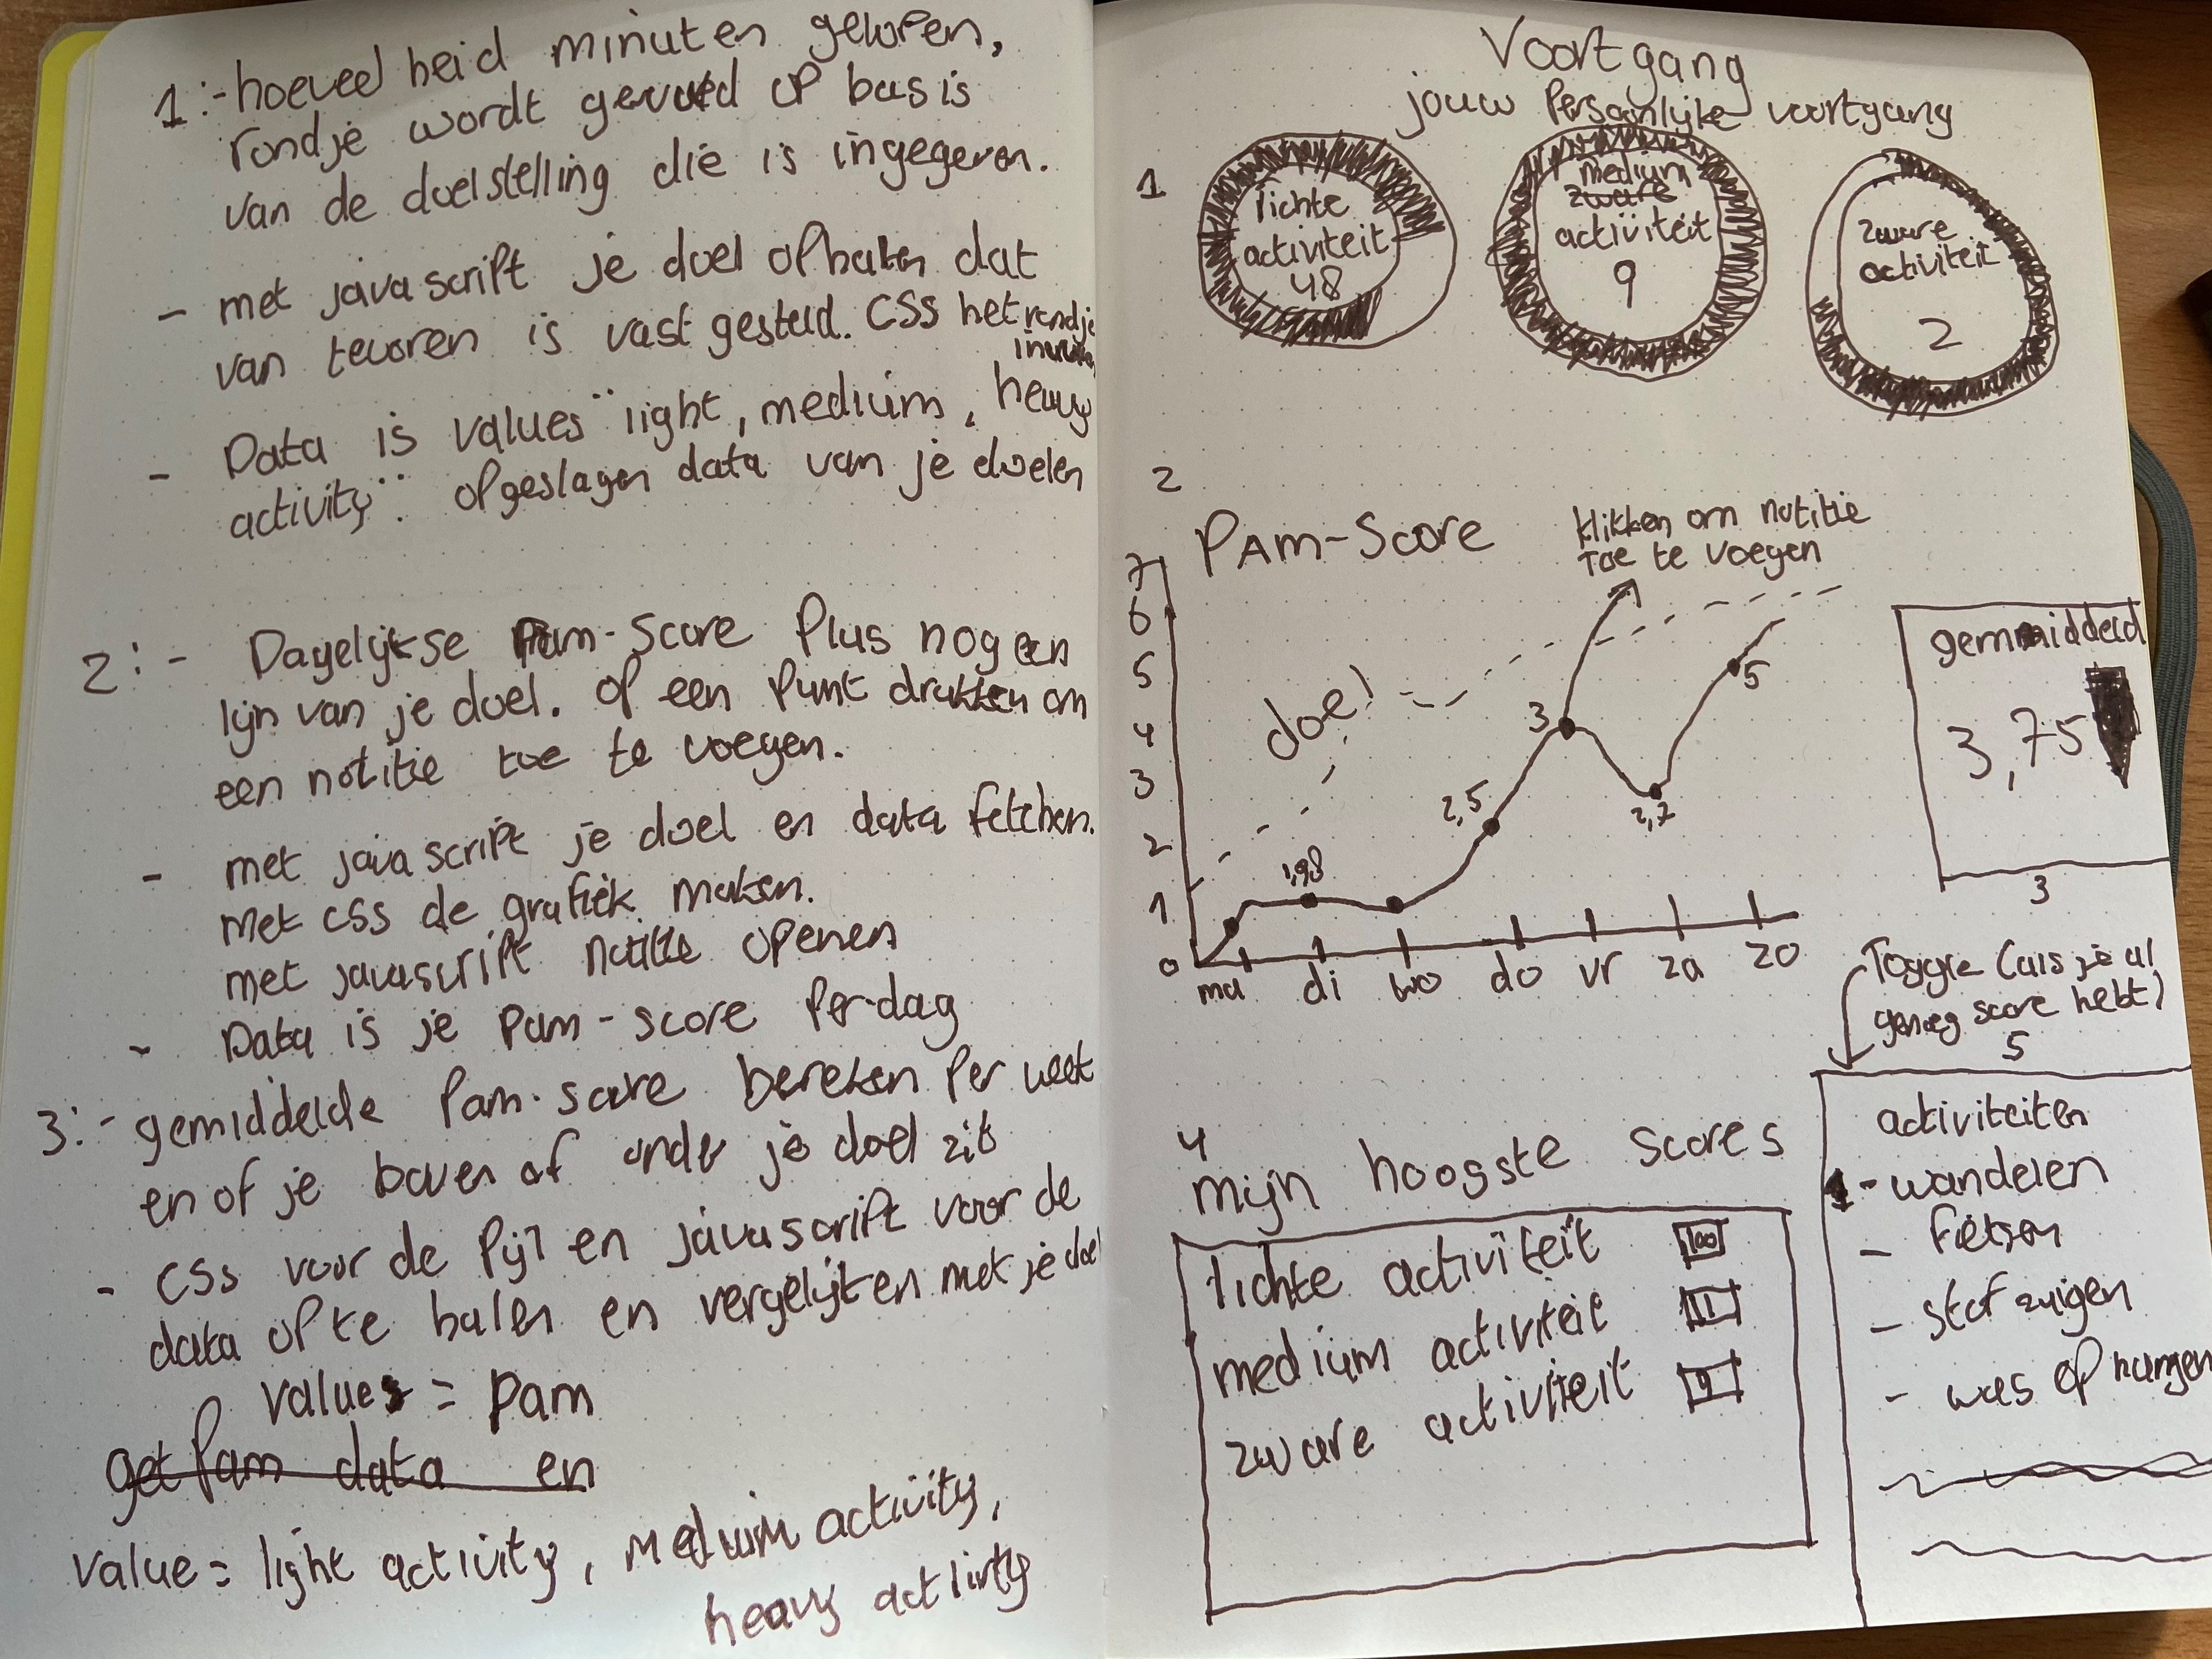 1:- hoeveelheid minuten gelopen,
rondje wordt gevuld op basis
van de doelstelling die is ingegeven.
- met javascript je doel ophalen dat
van tevoren is vast gesteld. CSS het rondje
- Data is values "light, medium, heavy
activity": opgeslagen data van je doelen
2:- Dagelijkse Pam-score Plus nog een
lijn van je doel. op een Punt drukken om
een notitie toe te voegen.
- met javascript je doel en data fetchen.
Met CSS de grafiek maken.
met javascript notitie openen
- Data is je Pam-score Per dag
3:- gemiddelde Pam-score bereken Per week
en of je boven of onder je doel zit
- CSS voor de Pijl en javascript voor de
data op te halen en vergelijken met je doel
values = pam
get Pam data en
value = light activity, medium activity,
heavy activity
Voortgang
jouw Persoonlijke voortgang
1
lichte
activiteit
48
medium
zware
activiteit
9
zware
activiteit
2
2
PAM-Score
klikken om notitie
toe te voegen
7
6
5
4
3
2
1
0
doel
1,98
2,5
3
2,7
5
ma di wo do vr za zo
gemmiddeld
3,75
3
Toggle (als je al
genoeg score hebt)
5
activiteiten
- wandelen
- fietsen
- stofzuigen
- was ophangen
4
mijn hoogste scores
lichte activiteit 100
medium activiteit 11
zware activiteit 9